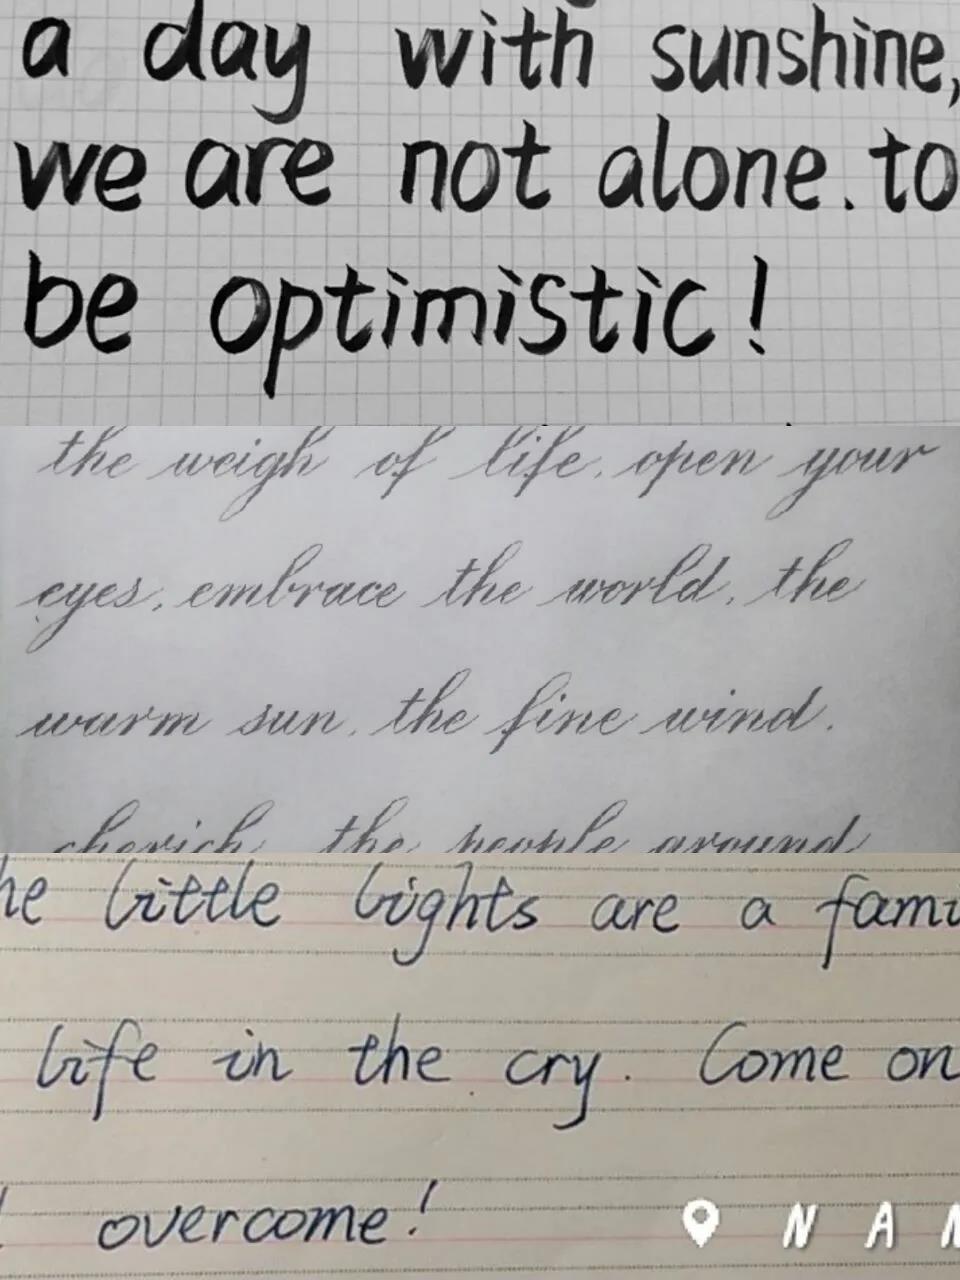 a day with sunshine,
we are not alone. to
be optimistic!
the weigh of life, open your
eyes, embrace the world, the
warm sun, the fine wind.
cherish the people around
he little lights are a fami
life in the cry. Come on
overcome!
N A N